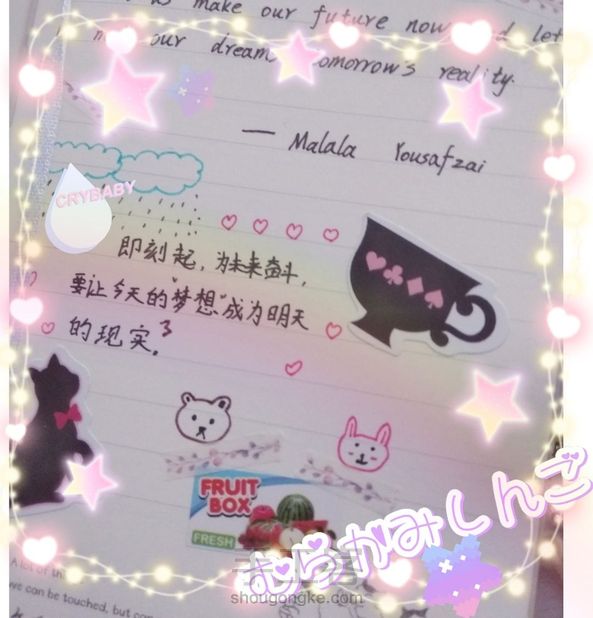 make our future now
let
our dream tomorrow's reality.
— Malala Yousafzai
CRYBABY
即刻起，为未来奋斗，
要让今天的"梦想"成为明天
的现实。
FRUIT
BOX
FRESH
むらかみしんご
shougongke.com
A lot of th
we can be touched, but